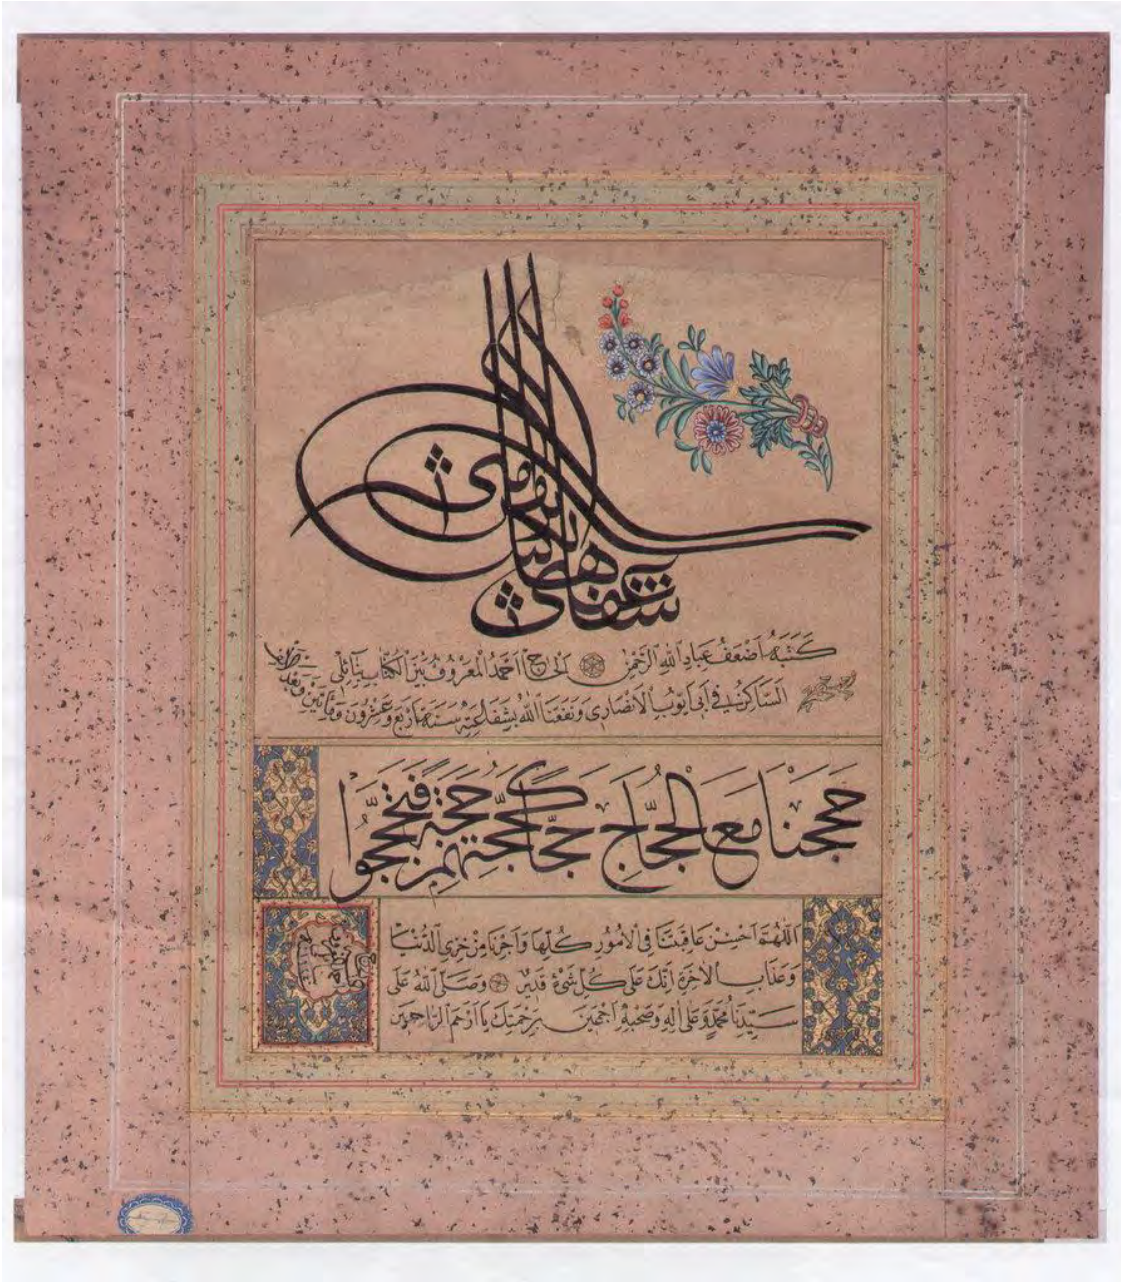 شفاعتي لأهل الكبائر من أمتي
كَتَبَهُ اَضْعَفُ عِبَادِ اللهِ الرَّحْمٰنِ اَلْحَاجّ اَحْمَدُ الْمَعْرُوفُ بَيْنَ الْكُتَّابِ بِنَائِلِى
السَّاكِنُ فِى اَبِى اَيُّوبِ الْاَنْصَارِى وَنَفَعَنَا اللهُ بِشَفَاعَتِهِ سَنَةَ اَرْبَعَ وَعِشْرُونَ وَمِأَتَيْنِ وَبَعْدَ
حَجَجْنَا مَعَ الْحُجَّاجِ حَجًّا كَحَجَّتِهِمْ
اَللّٰهُمَّ اَحْسِنْ عَاقِبَتَنَا فِى الْاُمُورِ كُلِّهَا وَاَجِرْنَا مِنْ خِزْىِ الدُّنْيَا
وَعَذَابِ الْاٰخِرَةِ اِنَّكَ عَلَى كُلِّ شَىْءٍ قَدِيرٌ وَصَلَّى اللهُ عَلَى
سَيِّدِنَا مُحَمَّدٍ وَعَلَى اٰلِهِ وَصَحْبِهِ اَجْمَعِينَ بِرَحْمَتِكَ يَا اَرْحَمَ الرَّاحِمِينَ